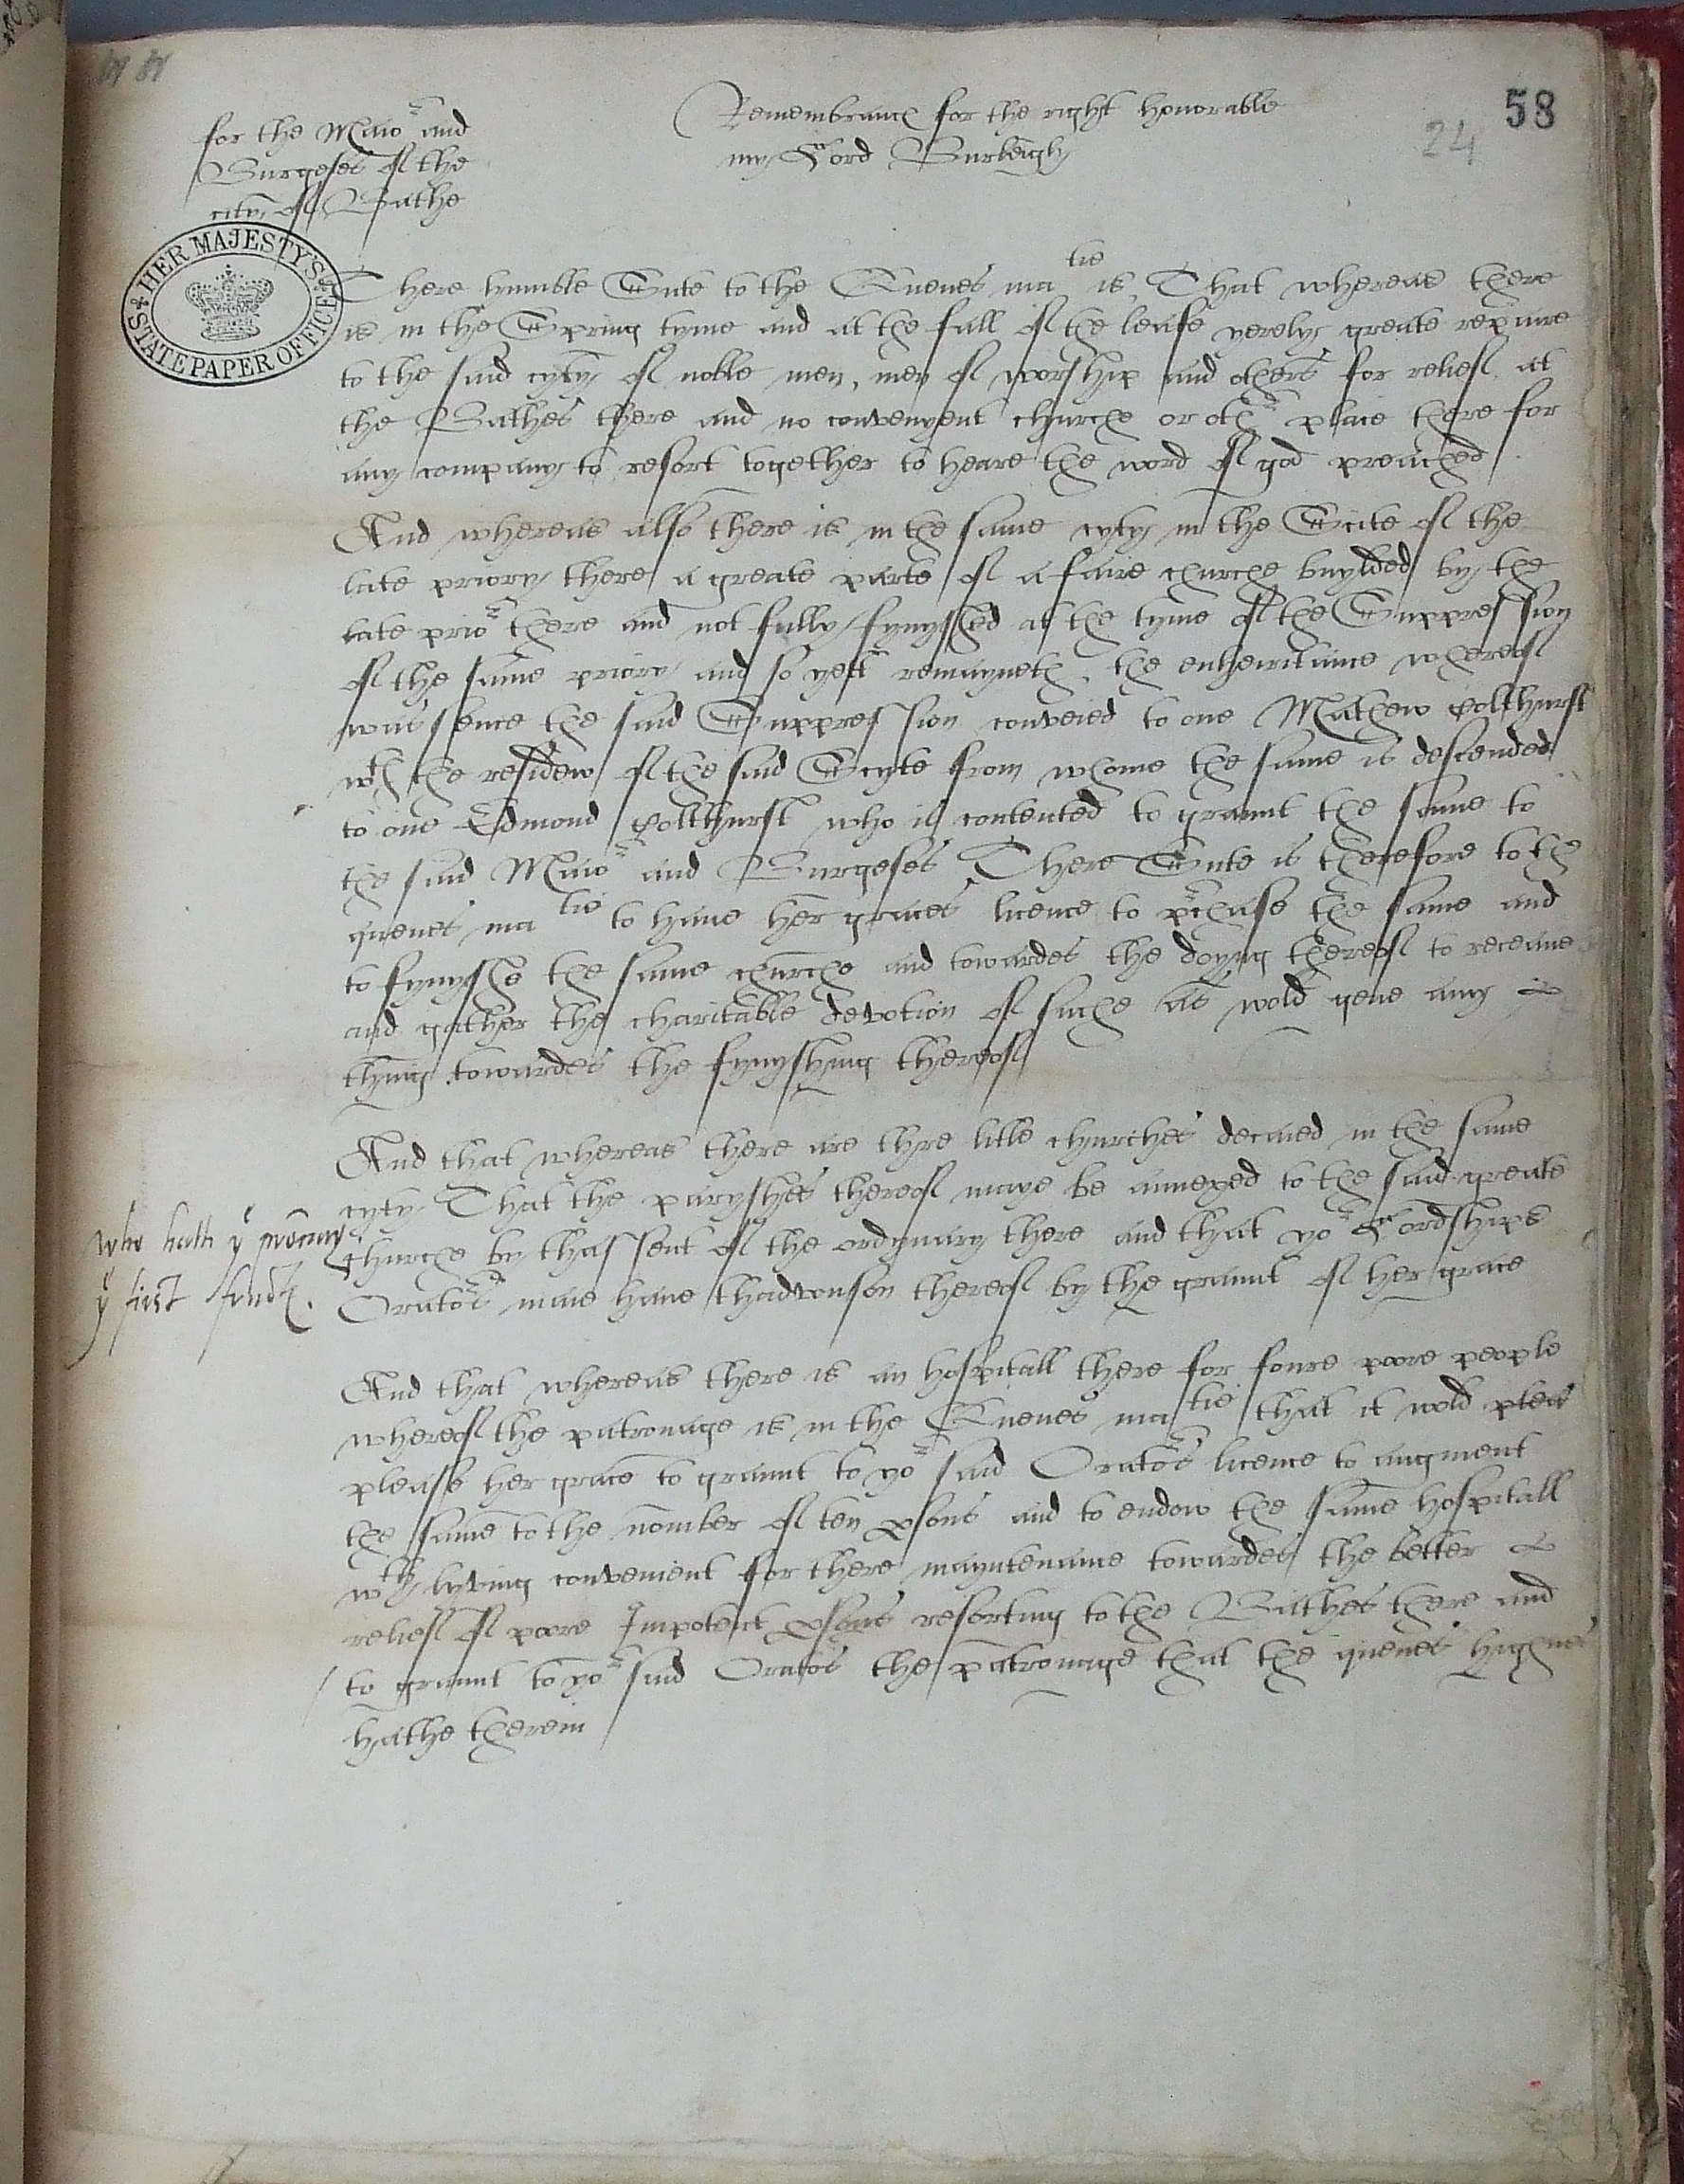 58
24
Remembraunce for the right honorable
my Lord Burleigh
for the Maior and
Burgeses of the
city of Bathe
HER MAJESTY'S
STATE PAPER OFFICE
There humble Sute to the Quenes matie is That whereas there
is in the Spring tyme and at the fall of the leafe yerely greate repaire
to the said cyty of noble men, men of worship and others for relief at
the Bathes there and no convenyent churche or other place there for
any company to resort together to heare the word of god preached
And whereas also there is in the same cyty in the Scite of the
late priory there a greate parte of a faire churche buylded by the
late prior there and not fully fynyshed at the tyme of the Suppression
of the same priory and so yett remayneth, the enheritance whereof
was sence the said Suppression conveied to one Mathew Colthurst
wth the residew of the said Scyte from whome the same is descended
to one Edmond Colthurst who is contented to graunt the same to
the said Maior and Burgeses There Sute is therefore to the
quenes matie to have her graces licence to pchase the same and
to fynyshe the same churche and towardes the doyng thereof to receave
and gather the charitable devotion of suche as wold geve any
thing towardes the fynyshing thereof
And that whereas there are thre litle churches decaied in the same
cyty That the paryshes thereof maye be annexed to the said greate
churche by thassent of the ordynary there and that yor Lordships
Orators maie have thadvouson thereof by the graunt of her grace
who hath ye
ye first
And that whereas there is an hospitall there for foure poore people
whereof the patronage is in the Quenes matie that it wold pleas
please her grace to graunt to yor said Orators licence to augment
the same to the nomber of ten psons and to endow the same hospitall
wth lyving convenient for there mayntenance towardes the better
relief of poore Impotent psons resorting to the Bathes there and
to graunt to yor said Orators the patronage that the quenes highnes
hathe therein